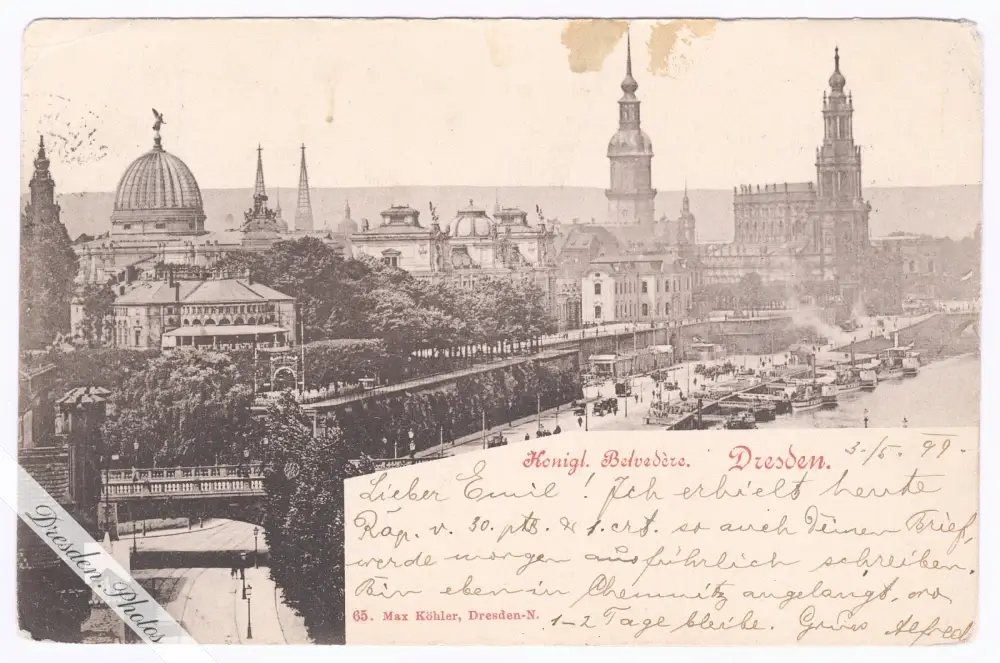 Königl. Belvedère. Dresden. 3./5. 99.
Lieber Emil! Ich erhielt heute
Räp. v. 30. pts. & 1. crt. so auch Deinen Brief,
werde morgen ausführlich schreiben.
Bin eben in Chemnitz angelangt, wo
65. Max Köhler, Dresden-N. 1-2 Tage bleibe. Gruss Alfred
Dresden.Photos